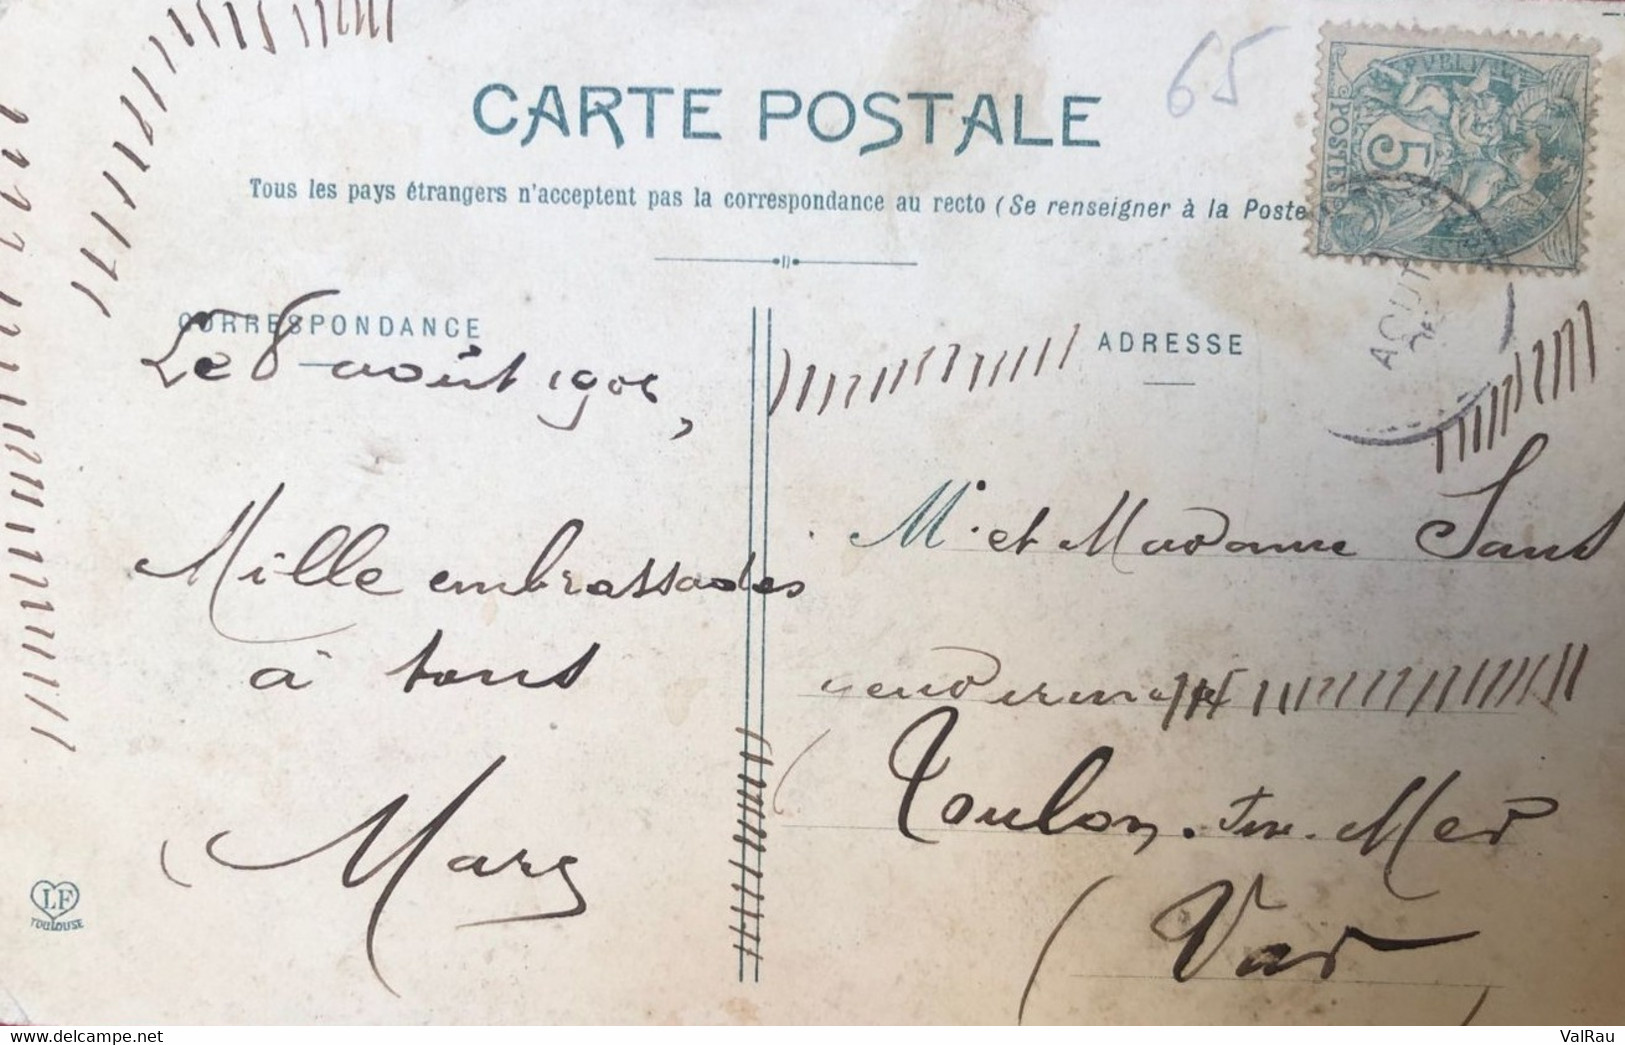 65
CARTE POSTALE
Tous les pays étrangers n'acceptent pas la correspondance au recto (Se renseigner à la Poste
RÉPUBLIQUE
POSTES
5
AOUT
CORRESPONDANCE
Le 8 août
Mille embrassades
à tous
Marg
ADRESSE
M. et Madame Sans
Toulon-sur-Mer
(Var
LF
TOULOUSE
ValRau